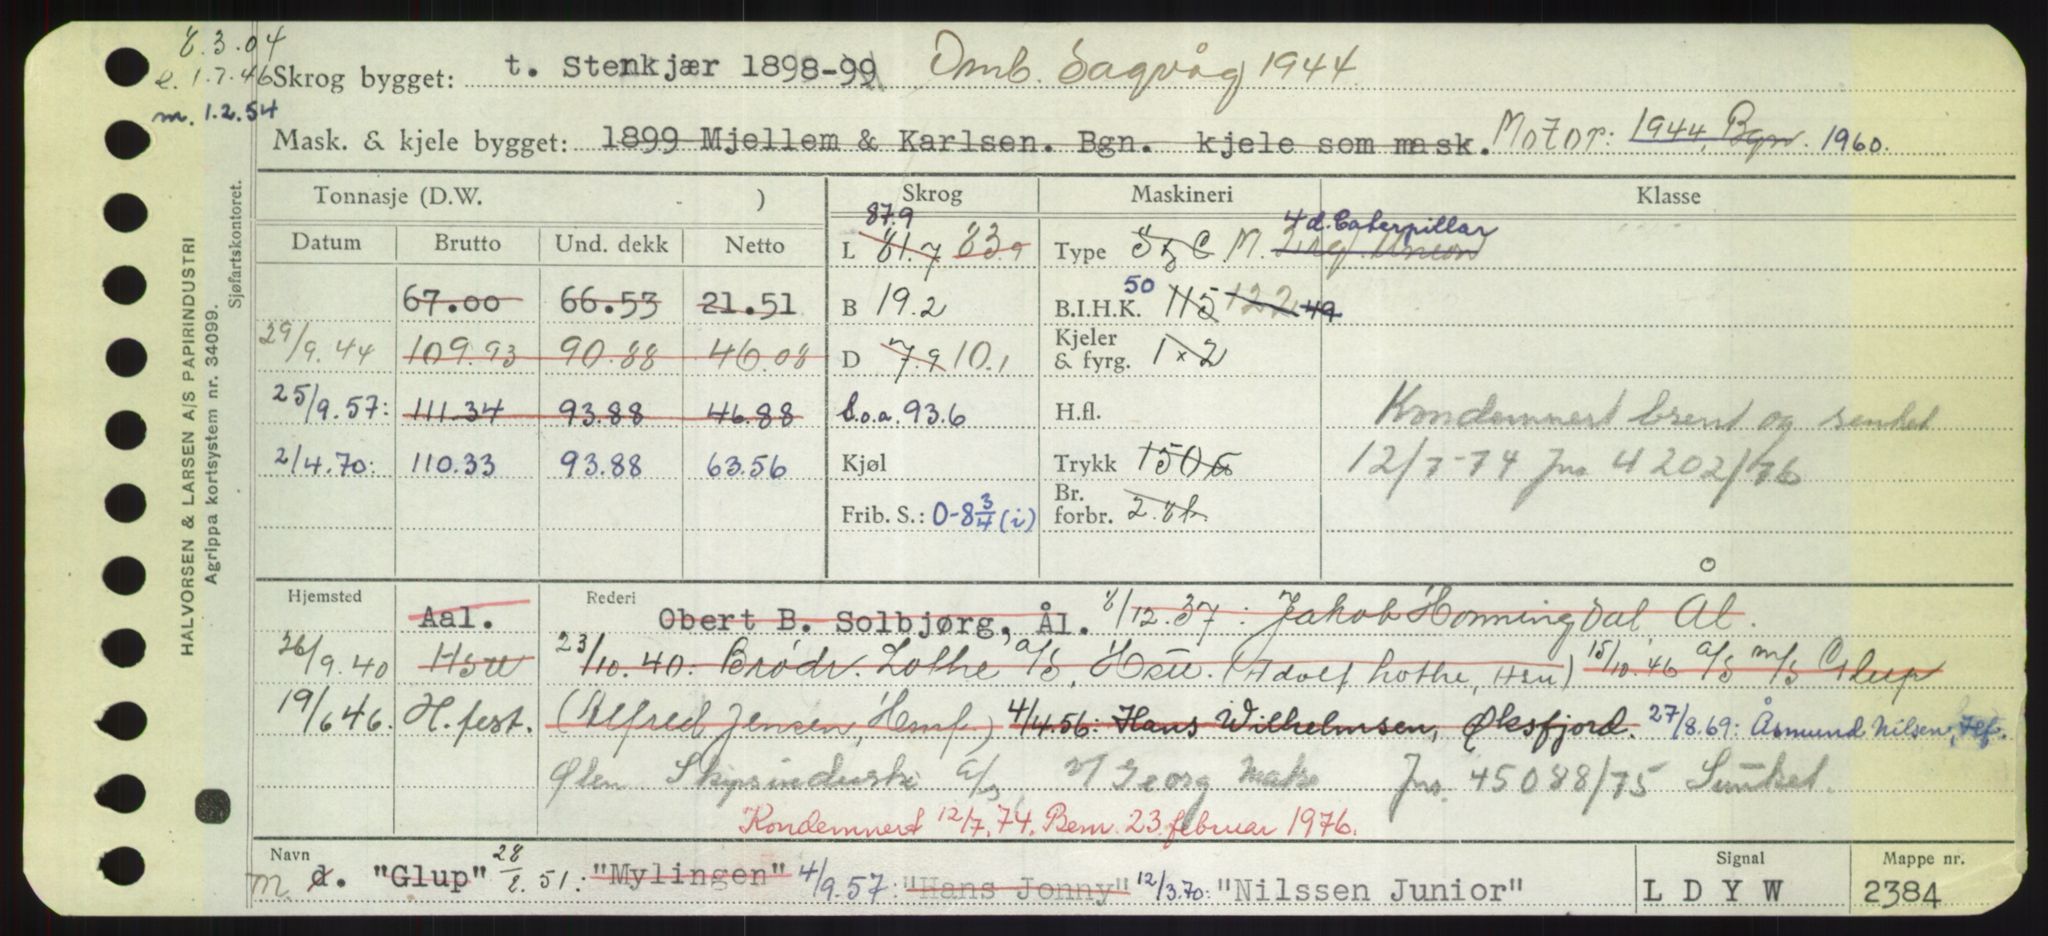 8.3.04
e. 1.7.46
m. 1.2.54
Skrog bygget: t. Stenkjær 1898-99 Omb. Sagvåg 1944
Mask. & kjele bygget: 1899 Mjellem & Karlsen. Bgn. kjele som mask. Motor: 1944, Bgn. 1960.
HALVORSEN & LARSEN A/S PAPIRINDUSTRI
Agrippa kortsystem nr. 34099.
Sjøfartskontoret.
Tonnasje (D.W. ) Skrog Maskineri Klasse
Datum Brutto Und. dekk Netto
87.9
L 81.7 83.9
4 d. Caterpillar
Type M. Union
67.00 66.53 21.51
B 19.2
50
B.I.H.K. 115 122 49
29/9.44 109.93 90.88 46.08
D 7.9 10.1
Kjeler & fyrg. 1 x 2
25/9.57: 111.34 93.88 46.88
L.o.a. 93.6
H.fl.
Kondemnert brent og senket
2/4.70: 110.33 93.88 63.56
Kjøl
Trykk 150
12/7-74 Jnr. 4202/76
Frib. S.: 0-8 3/4 (i)
Br. forbr.
Hjemsted Aal. Rederi Obert B. Solbjørg, Ål. 8/12.37: Jakob Honningdal Ål.
26/9.40 23/10.40: Brødr. Lothe A/S, (Adolf Lothe, ) 15/10.46 A/S M/S Glup
19/6 46. H.fest. (Alfred Jensen, Hmf.) 4/4.56: Hans Wilhelmsen, Øksfjord. 27/8.69: Åsmund Nilsen, Hf.
Ølen Skipsindustri A/S, v/ Georg Jnr. 45088/75
Kondemnert 12/7.74. Bem. 23. februar 1976.
Navn m. d. "Glup" 28/2.51: "Mylingen" 4/9.57: "Hans Jonny" 12/3.70: "Nilssen Junior"
Signal L D Y W
Mappe nr. 2384